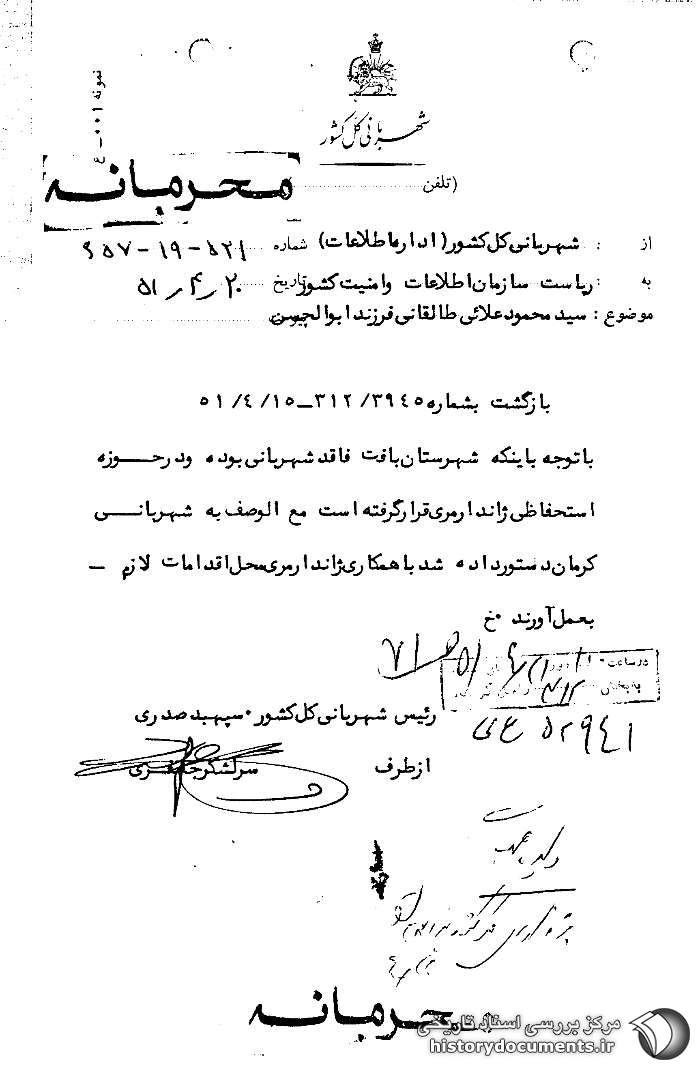 نمونه ۰۰۱-ع
شهربانی کل کشور
محرمانه
(تلفن
از : شهربانی کل کشور (اداره اطلاعات) شماره ۵۲۱-۱۹-۶۵۷
به : ریاست سازمان اطلاعات وامنیت کشور تاریخ ۲۰/۴/۵۱
موضوع : سید محمود علائی طالقانی فرزند ابوالحسن
بازگشت بشماره ۳۹۴۵/ ۳۱۲ـ۱۵/ ۴/ ۵۱
باتوجه باینکه شهرستان بافت فاقد شهربانی بوده ودرحوزه
استحفاظی ژاندارمری قرارگرفته است مع الوصف به شهربانی
کرمان دستورداده شد باهمکاری ژاندارمری محل اقدامات لازم ـ
بعمل آورند ۰خ
در ساعت
رئیس شهربانی کل کشور ۰ سپهبد صدری
۵۲۹۴۱
ازطرف سرلشکر جعفری
محرمانه
مرکز بررسی اسناد تاریخی
historydocuments.ir